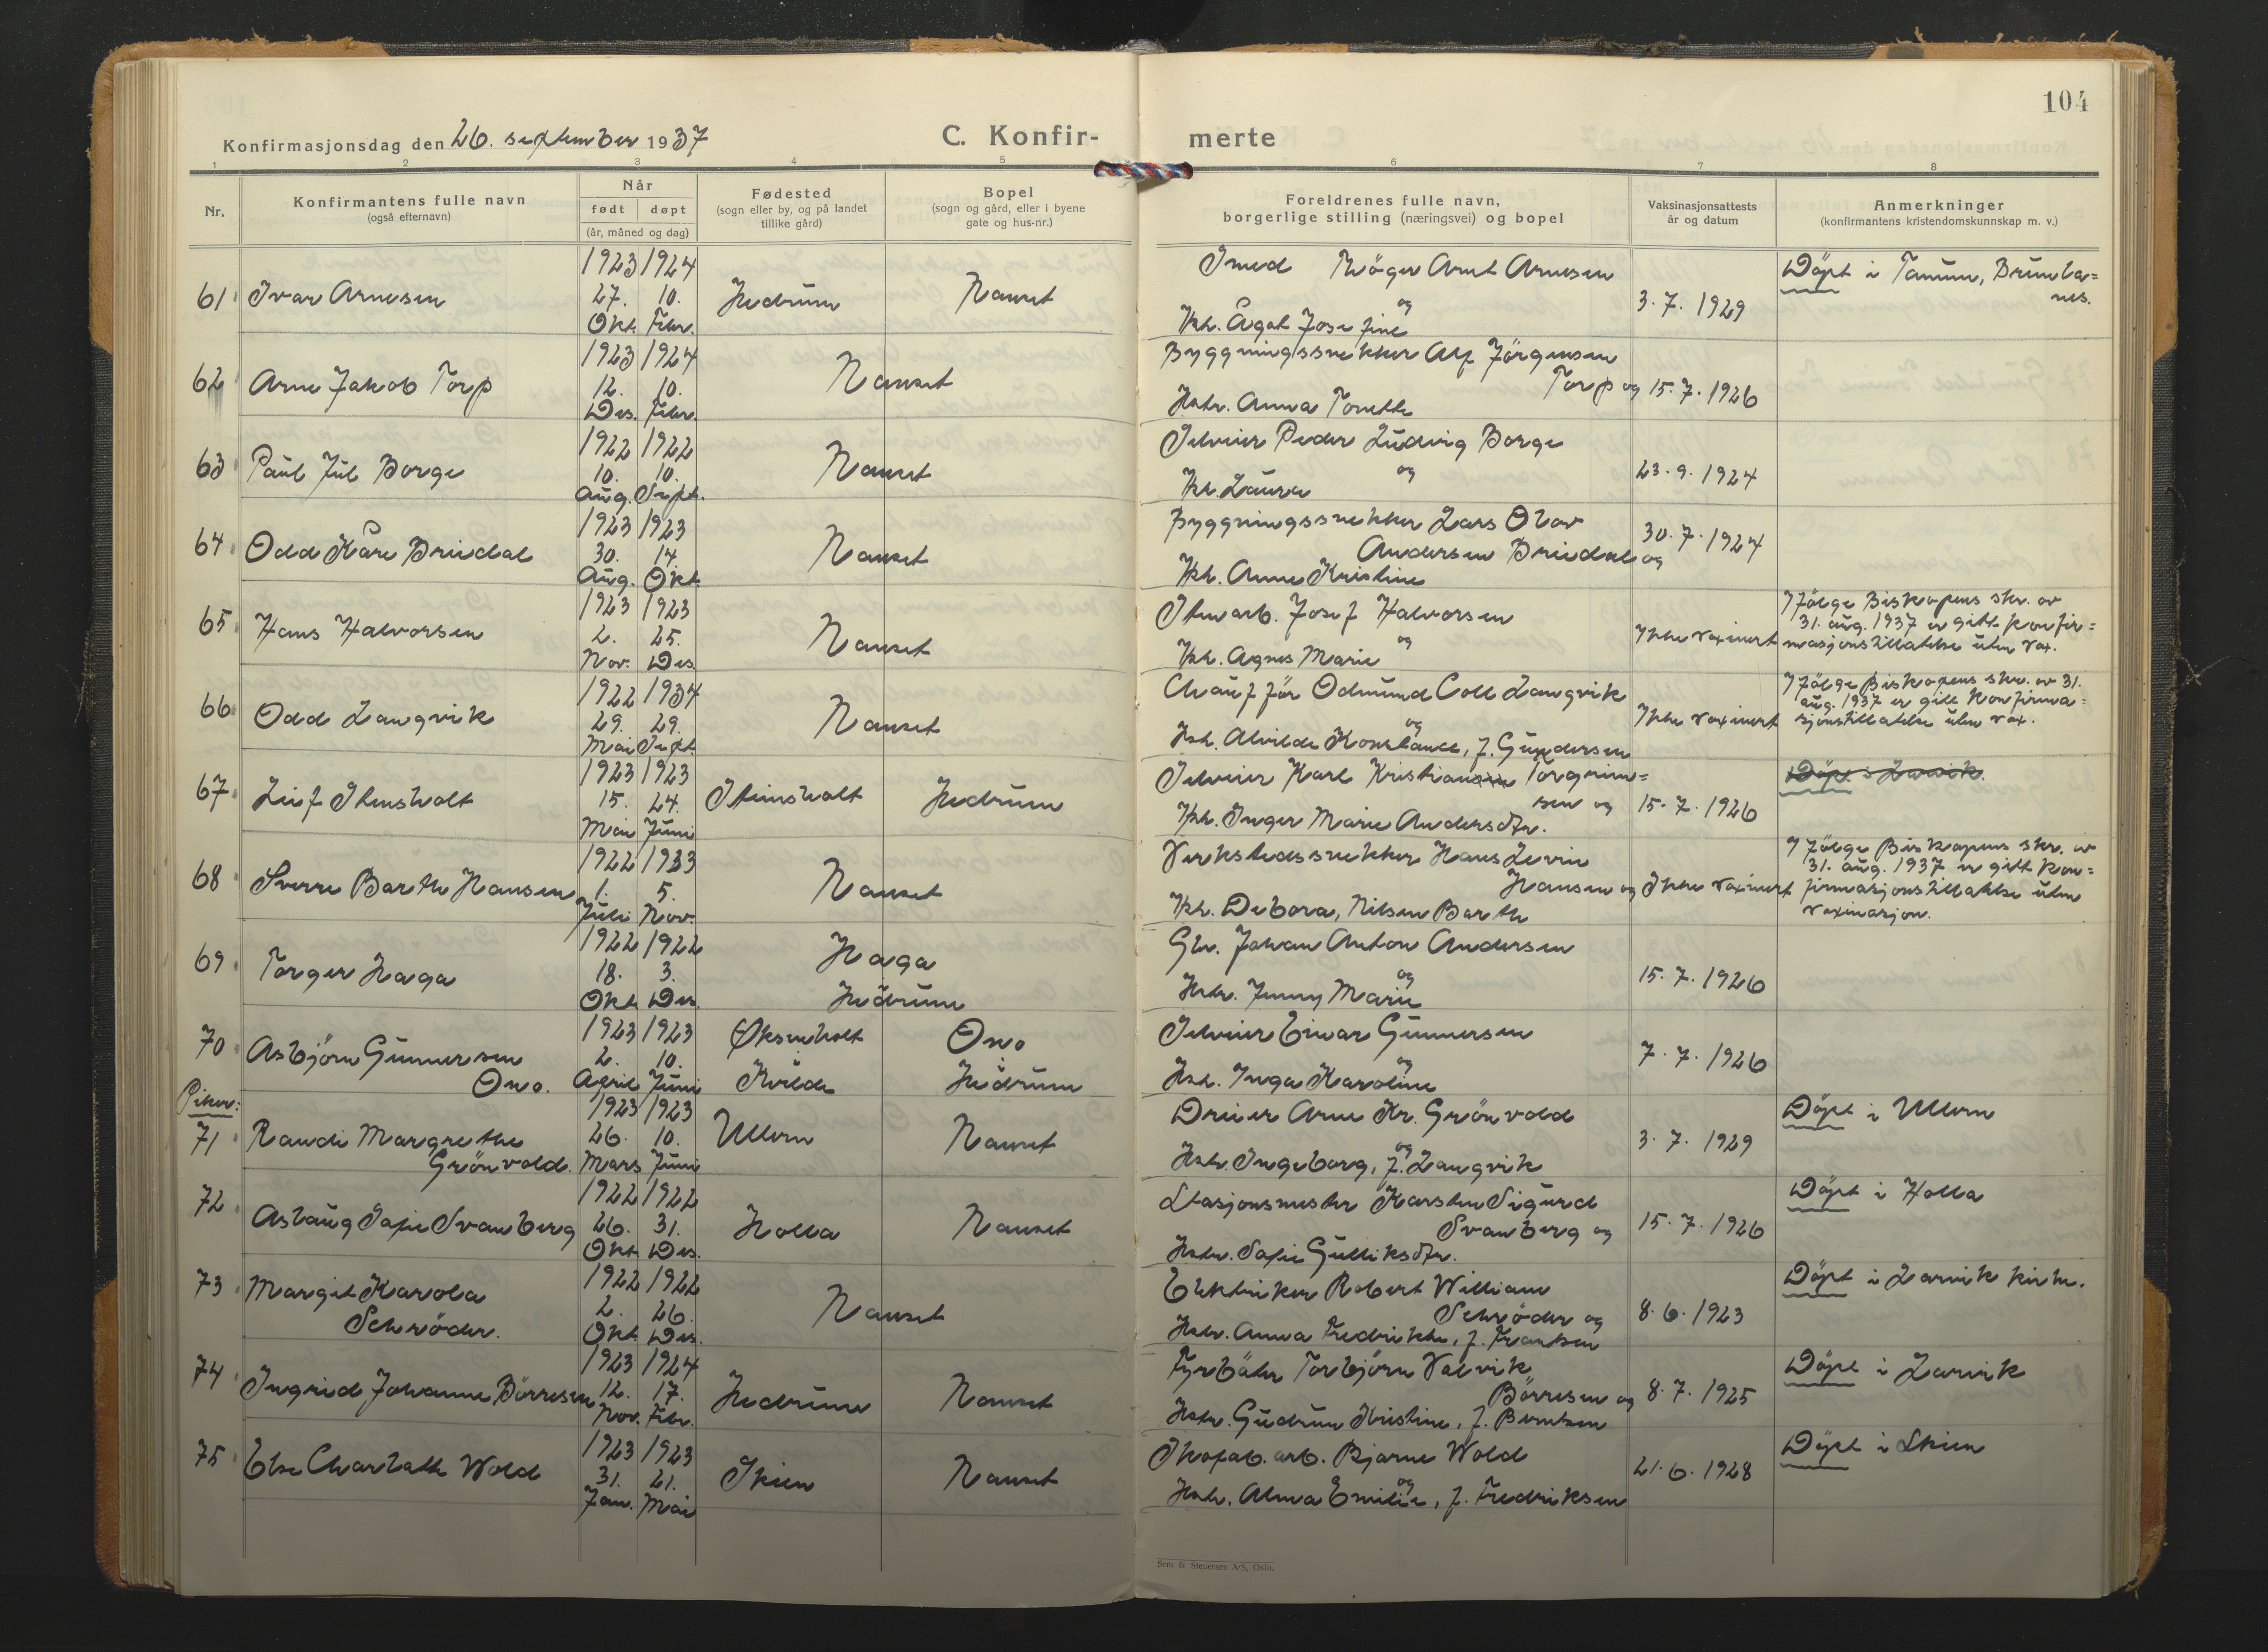 104
Konfirmasjonsdag den 26. september 1937
C. Konfir-
merte
1 2 3 4 5 6 7 8
Nr.
Konfirmantens fulle navn
(også efternavn)
Når
født døpt
(år, måned og dag)
Fødested
(sogn eller by, og på landet
tillike gård)
Bopel
(sogn og gård, eller i byene
gate og hus-nr.)
Foreldrenes fulle navn,
borgerlige stilling (næringsvei) og bopel
Vaksinasjonsattests
år og datum
Anmerkninger
(konfirmantens kristendomskunnskap m. v.)
61 Ivar Arnesen
1923 1924
27. 10.
Okt. Febr.
Hedrum Nanset
Smed Thöger Arnt Arnesen
og
Hh. Agot Josefine
3. 7. 1929
Döpt i Tanum, Brunla=
nes.
62 Arne Jakob Torp
1923 1924
12. 10.
Des. Febr.
Nanset
Byggningssnekker Alf Jörgensen
Torp og
Hstr. Anna Tonette
15. 7. 1926
63 Paul Jul Borge
1922 1922
10. 10.
Aug. Sept.
Nanset
Selveier Peder Ludvig Borge
og
Hh. Laura
23. 9. 1924
64 Odd Kåre Bredal
1923 1923
30. 14.
Aug. Okt.
Nanset
Byggningssnekker Lars Olav
Andersen Bredal og
Hh. Anne Kristine
30. 7. 1924
65 Hans Halvorsen
1923 1923
2. 25.
Nov. Des.
Nanset
Stenarb. Josef Halvorsen
og
Hh. Agnes Marie
Ikke vaxinert
Ifölge Biskopens skr. av
31. aug. 1937 er gitt konfir=
masjonstillatelse uten vax.
66 Odd Langvik
1922 1934
29. 29.
Mai Sept.
Nanset
Chaufför Odmund Coll Langvik
og
Hst. Alvilde Konstance, f. Gundersen
Ikke vaxinert
Ifölge Biskopens skr. av 31.
aug. 1937 er gitt konfirma=
sjonstillatelse uten vax.
67 Leif Stensholt
1923 1923
15. 24.
Mai Juni
Steinsholt Hedrum
Selveier Karl Kristian Torgrim=
sen og
Hh. Inger Marie Andersdtr.
15. 7. 1926
Döpt i Larvik.
68 Sverre Barth Hansen
1922 1933
1. 5.
Juli Nov.
Nanset
Verkstedssnekker Hans Levin
Hansen og
Hh. Debora, Nilsen Barth
Ikke vaxinert
Ifölge Biskopens skr. av
31. aug. 1937 er gitt kon=
firmasjonstillatelse uten
vaxinasjon.
69 Torger Haga
1922 1922
18. 3.
Okt. Des.
Haga
Hedrum
Gbr. Johan Anton Andersen
og
Hstr. Jenny Marie
15. 7. 1926
70 Asbjörn Gunnersen
Ono.
1923 1923
2. 10.
April Juni
Øksenholt
Kvelde
Ono
Hedrum
Selveier Einar Gunnersen
og
Hst. Inga Karoline
7. 7. 1926
Piker:
71 Randi Margrethe
Grönvold.
1923 1923
26. 10.
Mars Juni
Ullern Nanset
Dreier Arne Kr. Grönvold
og
Hstr. Ingeborg, f. Langvik
3. 7. 1929
Döpt i Ullern
72 Aslaug Sofie Svanberg
1922 1922
26. 31.
Okt. Des.
Holla Nanset
Stasjonsmester Karsten Sigurd
Svanberg og
Hstr. Sofie Gulliksdtr.
15. 7. 1926
Döpt i Holla
73 Margit Karola
Schröder.
1922 1922
2. 26.
Okt. Des.
Nanset
Elektriker Robert William
Schröder og
Hstr. Anna Fredrikke, f. Frantsen
8. 6. 1923
Döpt i Larvik kirke.
74 Ingrid Johanne Börresen
1923 1924
12. 17.
Nov. Febr.
Hedrum Nanset
Fyrböter Torbjörn Valvik
Börresen og
Hstr. Gudrun Kristine, f. Berntsen
8. 7. 1925
Döpt i Larvik
75 Else Charlotte Wold
1923 1923
31. 21.
Jan. Mai
Skien Nanset
Skofab. arb. Bjarne Wold
og
Hstr. Alma Emilie, f. Fredriksen
21. 6. 1928
Döpt i Skien
Sem & Stenersen A/S, Oslo.